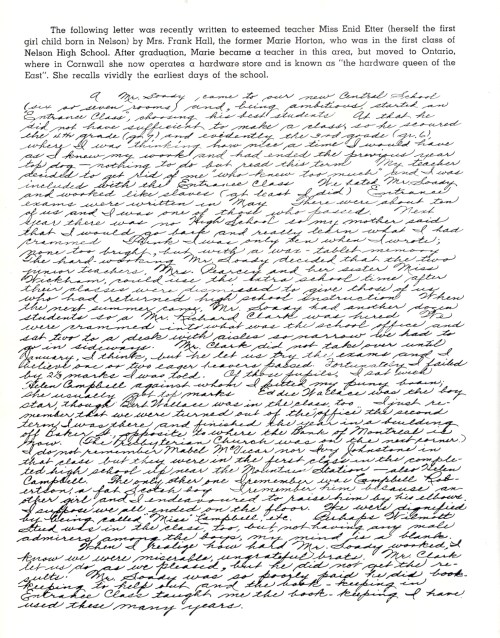 The following letter was recently written to esteemed teacher Miss Enid Etter (herself the first
girl child born in Nelson) by Mrs. Frank Hall, the former Marie Horton, who was in the first class of
Nelson High School. After graduation, Marie became a teacher in this area, but moved to Ontario,
where in Cornwall she now operates a hardware store and is known as "the hardware queen of the
East". She recalls vividly the earliest days of the school.
A Mr. Soady came to our new Central School
(six or seven rooms) and, being ambitious, started an
Entrance Class, choosing his best students. At that he
did not have sufficient to make a class, so he scoured
the 4th grade and evidently the 3rd grade (gr. 6),
where I was thinking how nice a time I would have
as I knew my work and had ended the previous year
top dog — nothing to do but read this term. My teacher
decided to get rid of me "who knew too much" and I was
included with the Entrance Class. We hated Mr. Soady,
and worked like slaves (at least I did). Entrance
exams were written in May. There were about ten
of us and I was one of those who passed. Next
year there was no High School so my mother said
that I would go back and really learn what I had
crammed. I think I was only ten when I wrote,
none too bright, but with a wax-tablet memory.
The hard working Mr. Soady decided that the two
junior teachers, Mrs. Pearcey and her sister Miss
Wickham, could use the extra school time after
their classes were dismissed to give those of us
who had returned high school instruction. When
the next summer came, Mr. Soady had another dozen
students so a Mr. Richard Clark was hired. We
were crammed into what was the school office and
sat two to a desk with aisles so narrow we had to
go in sideways. Mr. Clark did not take over until
January, I think, but he let us try the exams and I
believe one or two eager beavers passed. Fortunately I failed
by 23 marks I was told. Of those pupils I sat with
Helen Campbell against whom I pitted my puny brain,
she usually got 1st marks. Eddie Wallace was the boy
star, though Gerd Wallace was in the class too. I just re-
member that we were turned out of the office the second
term I was there, and finished the year in a building
off Baker St., opposite to where the Bank of Montreal is
now. (The Presbyterian Church was on the next corner)
I do not remember Mabel McVicar nor Ivy Johnstone in
that class but they were in the first class in the comple-
ted high school up near the Mountain Station — also Helen
Campbell. The only other one I remember was Campbell Rob-
ertson, a fat Scotch boy. I remember him because an-
other girl and I endeavored to raise him by his elbows.
I suppose we all ended on the floor. We were dignified
by being called "Miss Campbell," etc. Perhaps
was in the class, too, but not having any male
admirers among the boys, my mind is a blank.
When I realize how hard Mr. Soady worked, I
know we were miserable, ungrateful brats. Mr. Clark
let us do as we pleased, but he did not get the re-
sults. Mr. Soady was so poorly paid he did book-
keeping to help out and the book-keeping in
Entrance Class taught me the book-keeping I have
used these many years.